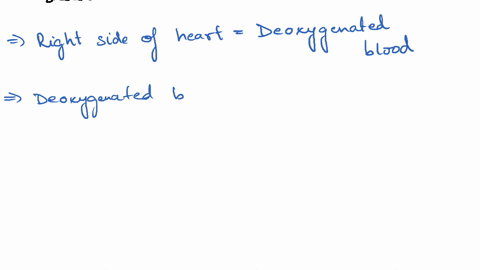 ⇒ Right side of heart = Deoxygenated
blood
⇒ Deoxygenated b